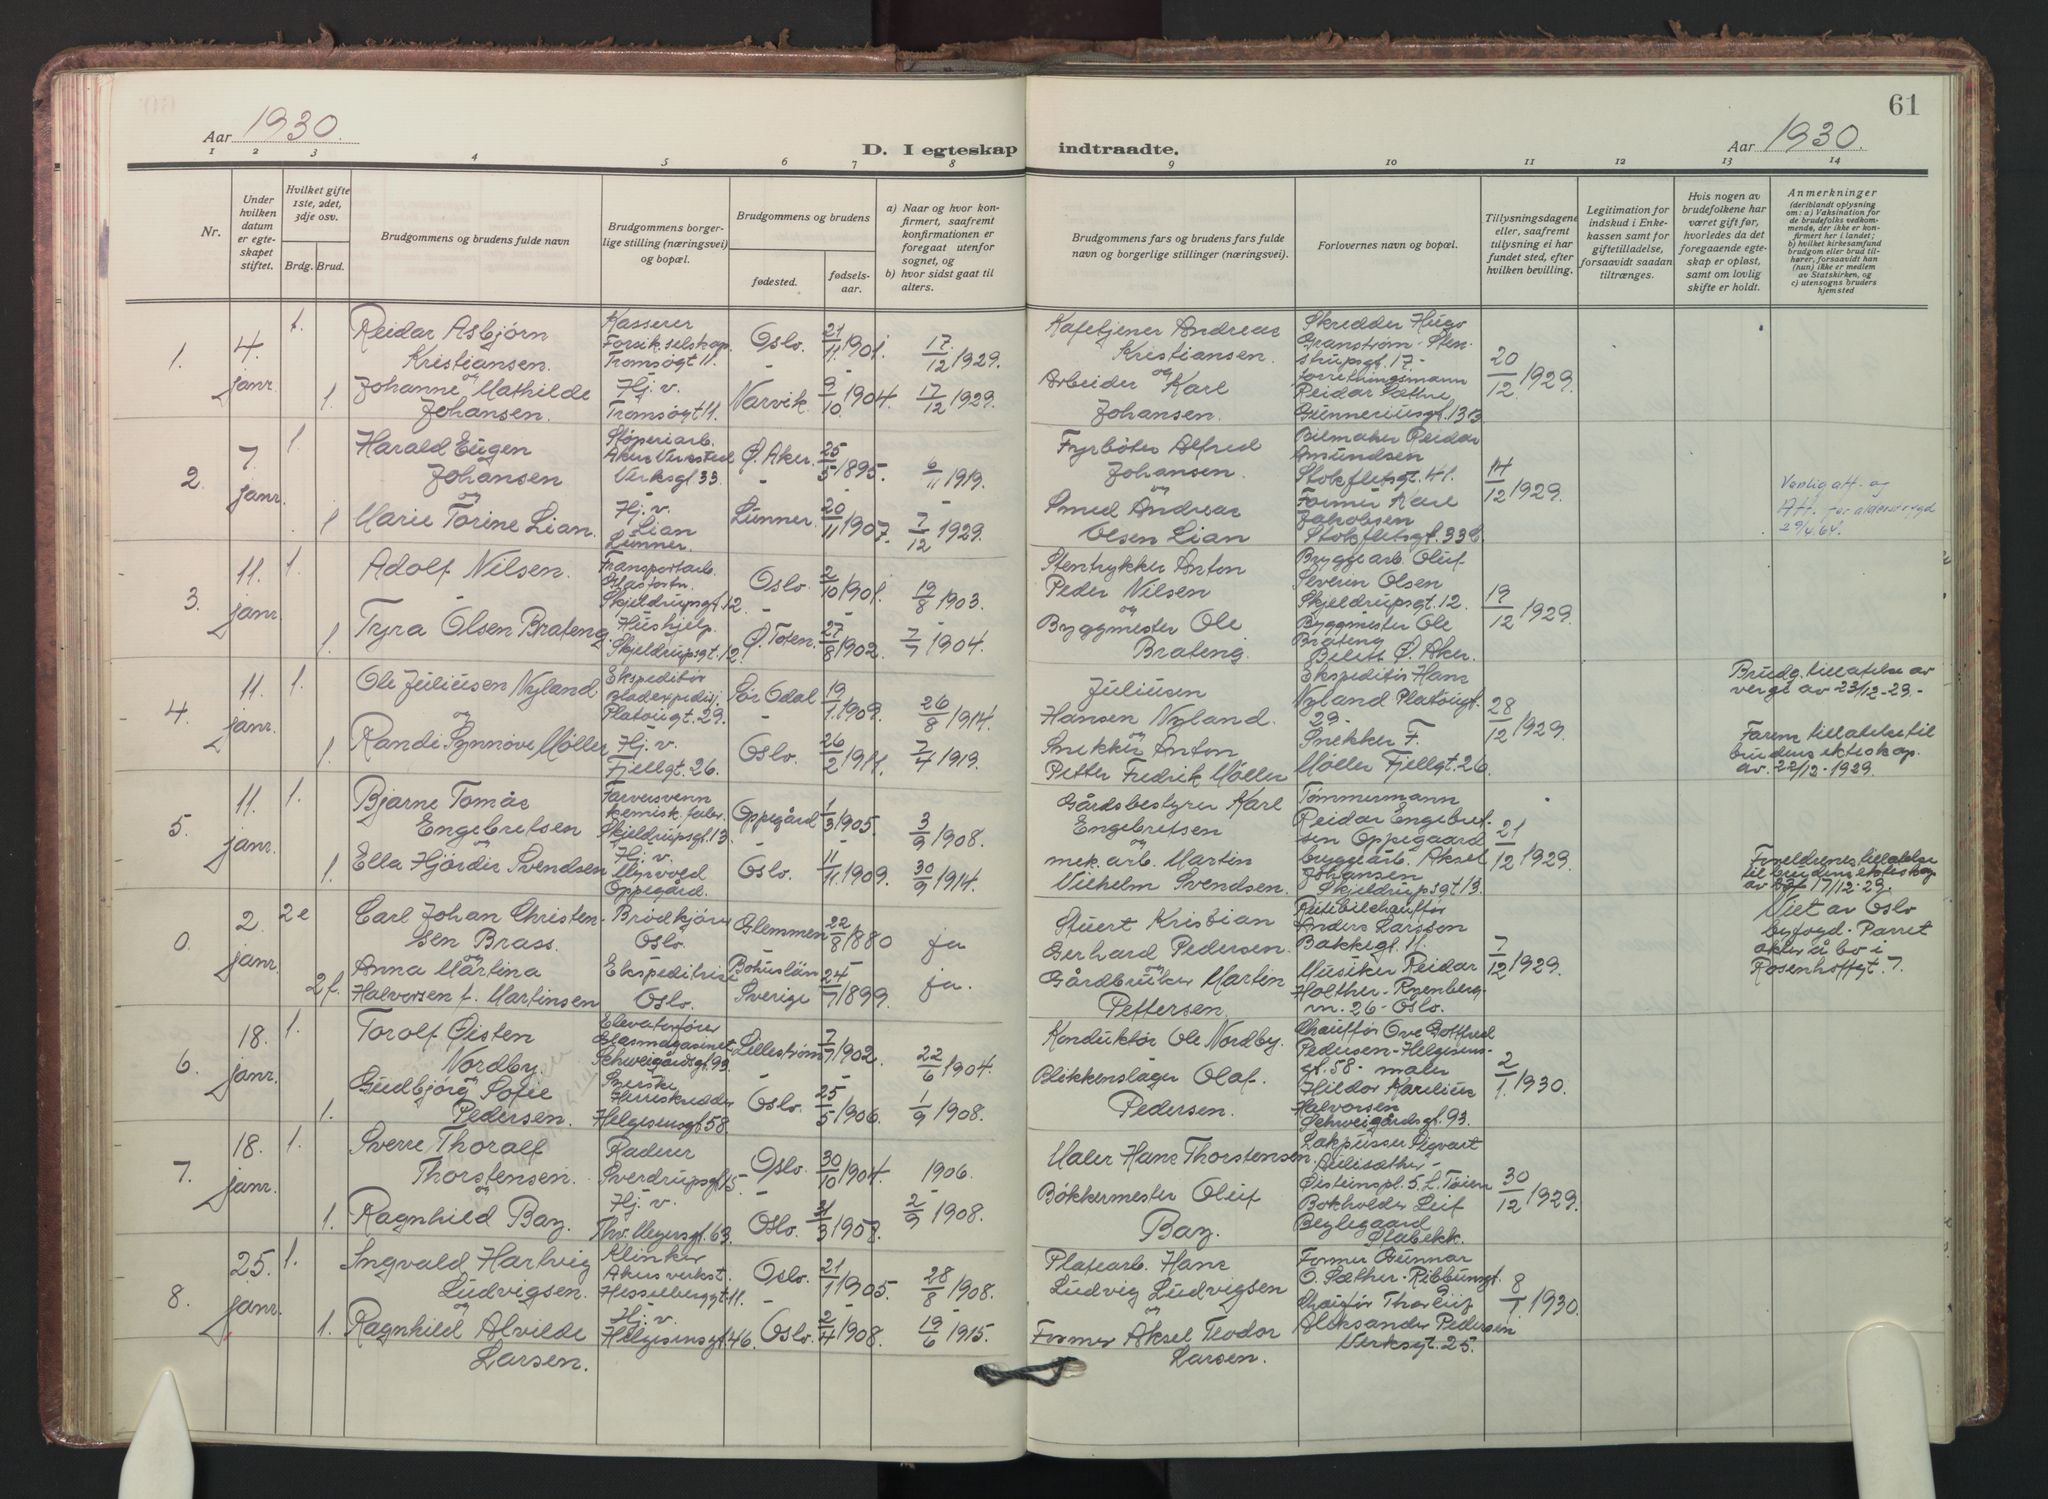 61
Aar 1930.
D. I egteskap indtraadte.
Aar 1930.
1 2 3 4 5 6 7 8 9 10 11 12 13 14
Nr.
Under hvilken datum er egteskapet stiftet.
Hvilket gifte 1ste, 2det, 3dje osv.
Brdg. Brud.
Brudgommens og brudens fulde navn
Brudgommens borgerlige stilling (næringsvei) og bopæl.
Brudgommens og brudens
fødested.
fødselsaar.
a) Naar og hvor konfirmert, saafremt konfirmationen er foregaat utenfor sognet, og
b) hvor sidst gaat til alters.
Brudgommens fars og brudens fars fulde navn og borgerlige stillinger (næringsvei).
Forlovernes navn og bopæl.
Tillysningsdagene eller, saafremt tillysning ei har fundet sted, efter hvilken bevilling.
Legitimation for indskud i Enkekassen samt for giftetilladelse, forsaavidt saadan tiltrænges.
Hvis nogen av brudefolkene har været gift før, hvorledes da det foregaaende egteskap er opløst, samt om lovlig skifte er holdt.
Anmerkninger
(deriblandt oplysning om: a) Vaksination for de brudefolks vedkommende, der ikke er konfirmert her i landet; b) hvilket kirkesamfund brudgom eller brud tilhører, forsaavidt han (hun) ikke er medlem av Statskirken, og c) utensogns bruders hjemsted
1. 4. janr. 1.
Reidar Asbjørn Kristiansen.
Kasserer Forsik.selskap. Tromsøgt 11.
Oslo. 21/11 1901. 17/12 1929.
Kafetjener Andreas Kristiansen.
Skredder Hugo Granström - Stenstrupsgt. 17.-
20/12 1929.
og
1. Johanne Mathilde Johansen.
Hj. v. Tromsøgt 11.
Narvik. 9/10 1904. 17/12 1929.
Arbeider Karl Johansen.
Forretningsmann Reidar Sæthre Gunneriusgt. 13 B.
2. 7. janr. 1
Harald Eugen Johansen
Støperiarb. Akers Verksted Verksgt 33.
Ø. Aker. 25/5 1895. 6/11 1919.
Fyrbøter Alfred Johansen.
Bilmaker Reidar Amundsen Stokfletsgt. 41.
14/12 1929.
og
1 Marie Torine Lian.
Hj. v. Lian Lunner.
Lunner. 20/11 1907. 7/12 1929.
Smed Andreas Olsen Lian
Former Karl Jakobsen Stokfletsgt. 33 b.
Vanlig att. og Att. for alderstrygd 29/4 64.
3. 11. janr. 1.
Adolf Nilsen.
Transportarb. Skjeldrupsgt. 12.
Oslo. 2/10 1901. 19/8 1903.
Stentrykker Anton Peder Nilsen
Byggearb. Oluf Severin Olsen Skjeldrupsgt. 12.
19/12 1929.
1. Tyra Olsen Brateng.
Hushjelp. Skjeldrupsgt. 12
Ø. Toten. 27/8 1902. 7/7 1904.
og
Byggmester Ole Brateng.
Byggmester Ole Brateng Ø. Aker.
4. 11. janr. 1.
Ole Juliusen Nyland
Ekspeditør Bladexpedisj. Platougt. 29.
Sør Odal 19/1 1909. 26/8 1914.
Juliusen Hansen Nyland.
Ekspeditør Hans Nyland Platougt. 29.-
28/12 1929.
Brudg. tillatelse av verge av 23/12-29.-
og
1. Randi Synnøve Møller
Hj. v. Fjellgt. 26.
Oslo. 26/2 1911. 7/4 1919.
Snekker Anton Petter Fredrik Møller
Snekker F. Møller Fjellgt. 26.
Farens tillatelse til brudens ekteskap. av 22/12-1929.
5. 11. janr. 1.
Bjarne Tomås Engebretsen
Farversvenn kemisk. Skjeldrupsgt. 13.
Oppegård 1/3 1905. 3/9 1908.
Gårdsbestyrer Karl Engebretsen
Tømmermann Reidar Engebretsen Oppegaard
21/12 1929.
og
1. Ella Hjørdis Svendsen
Hj. v. Myrvold Oppegård.
Oslo. 11/11 1909. 30/9 1914.
mek. arb. Martin Vilhelm Svendsen.
byggearb. Aksel Johansen Skjeldrupsgt 13.
Foreldrenes tillatelse til brudens ekteskap av 17/12-29.
0. 2. janr. 2 e
Carl Johan Christensen Brass.
Brødkjører Oslo.
Glemmen 22/8 1880 ja
Stuert Kristian Gerhard Pedersen.
Rutebilchauffør Anders Larsson Bakkegt. 11.
7/12 1929.
Viet av Oslo byfogd. Parret akter å bo i Rosenhoffgt. 7.
og
2 f. Anna Martina Halvorsen f. Martinsen
Ekspeditrise Oslo.
Bohuslän Sverige 24/7 1899. ja.
Gårdbruker Martin Pettersen.
Musiker Reidar Holther - Ryenberg- m. 26 - Oslo.
6. 18. janr. 1.
Torolf Øisten Nordby.
Elevatorfører Glasmagasinet Schweigårdsgt. 93.
Lillestrøm 7/7 1902. 22/6 1904.
Konduktør Ole Nordby.
Chauffør Ove Gottfred Pedersen - Helgesensgt. 58 -
2/1 1930.
og
1. Gudbjørg Sofie Pedersen.
Herreskredder Helgesensgt 58
Oslo. 25/5 1906. 1/9 1908.
Blikkenslager Olaf Pedersen.
maler Hildor Karelius Halvorsen Schweigårdsgt. 93.
7. 18. janr. 1.
Sverre Thoralf Thorstensen.
Raderer Sverdrupsgt 15.
Oslo. 30/10 1904. 1906.
Maler Hans Thorstensen.
Lakpusser Sigvart Øisteinspl. 5. L. Tøien
30/12 1929.
og
1. Ragnhild Bay.
Hj. v. Thv. Meyersgt. 63.
Oslo. 31/3 1908. 2/9 1908.
Bøkkermester Oluf Bay.
Bokholder Leif Beylegaard Stabekk.
8. 25. janr. 1.
Ingvald Hartvig Ludvigsen.
Klinker Akers verkst. Hesselbergt. 11.
Oslo. 21/1 1905. 28/8 1908.
Platearb. Hans Ludvig Ludvigsen
Former Gunnar O. Sæther - Ribbungt. 8
8/1 1930.
og
1. Ragnhild Alvilde Larsen.
Hj. v. Helgesensgt 46.
Oslo. 2/4 1908. 19/6 1915.
Former Aksel Teodor Larsen.
Chauffør Thorleif Aleksander Pedersen Verksgt. 25.